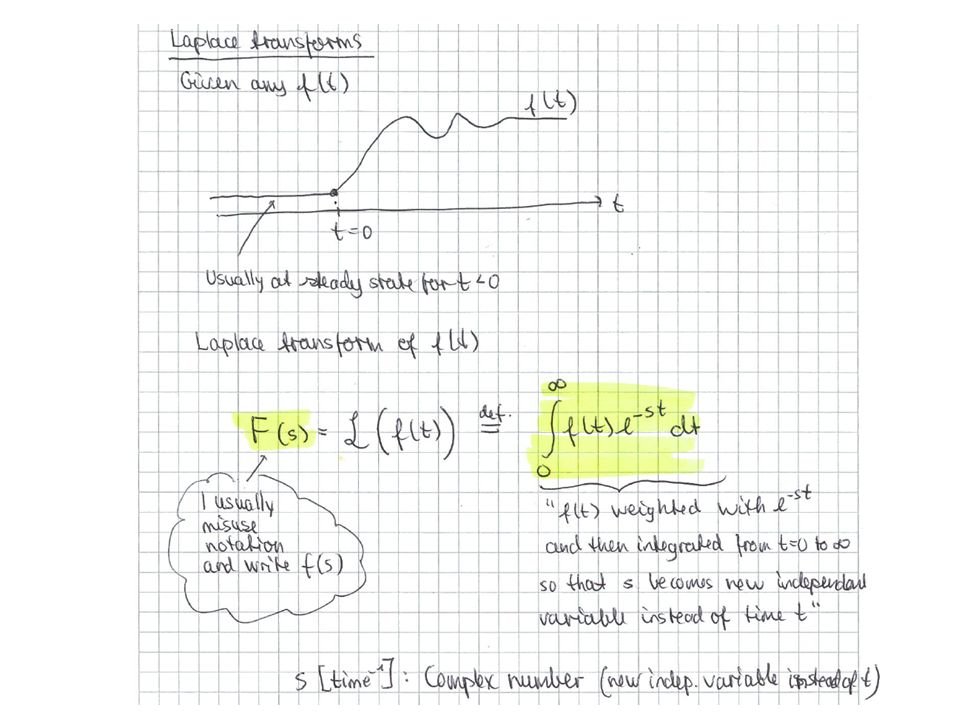 Laplace transforms
Given any f(t)
f(t)
t
t=0
Usually at steady state for t<0
Laplace transform of f(t)
F(s) = ℒ(f(t)) def.= ∫₀^∞ f(t) e^{-st} dt
I usually
misuse
notation
and write f(s)
"f(t) weighted with e^{-st}
and then integrated from t=0 to ∞
so that s becomes new independent
variable instead of time t"
s [time⁻¹]: Complex number (new indep. variable instead of t)